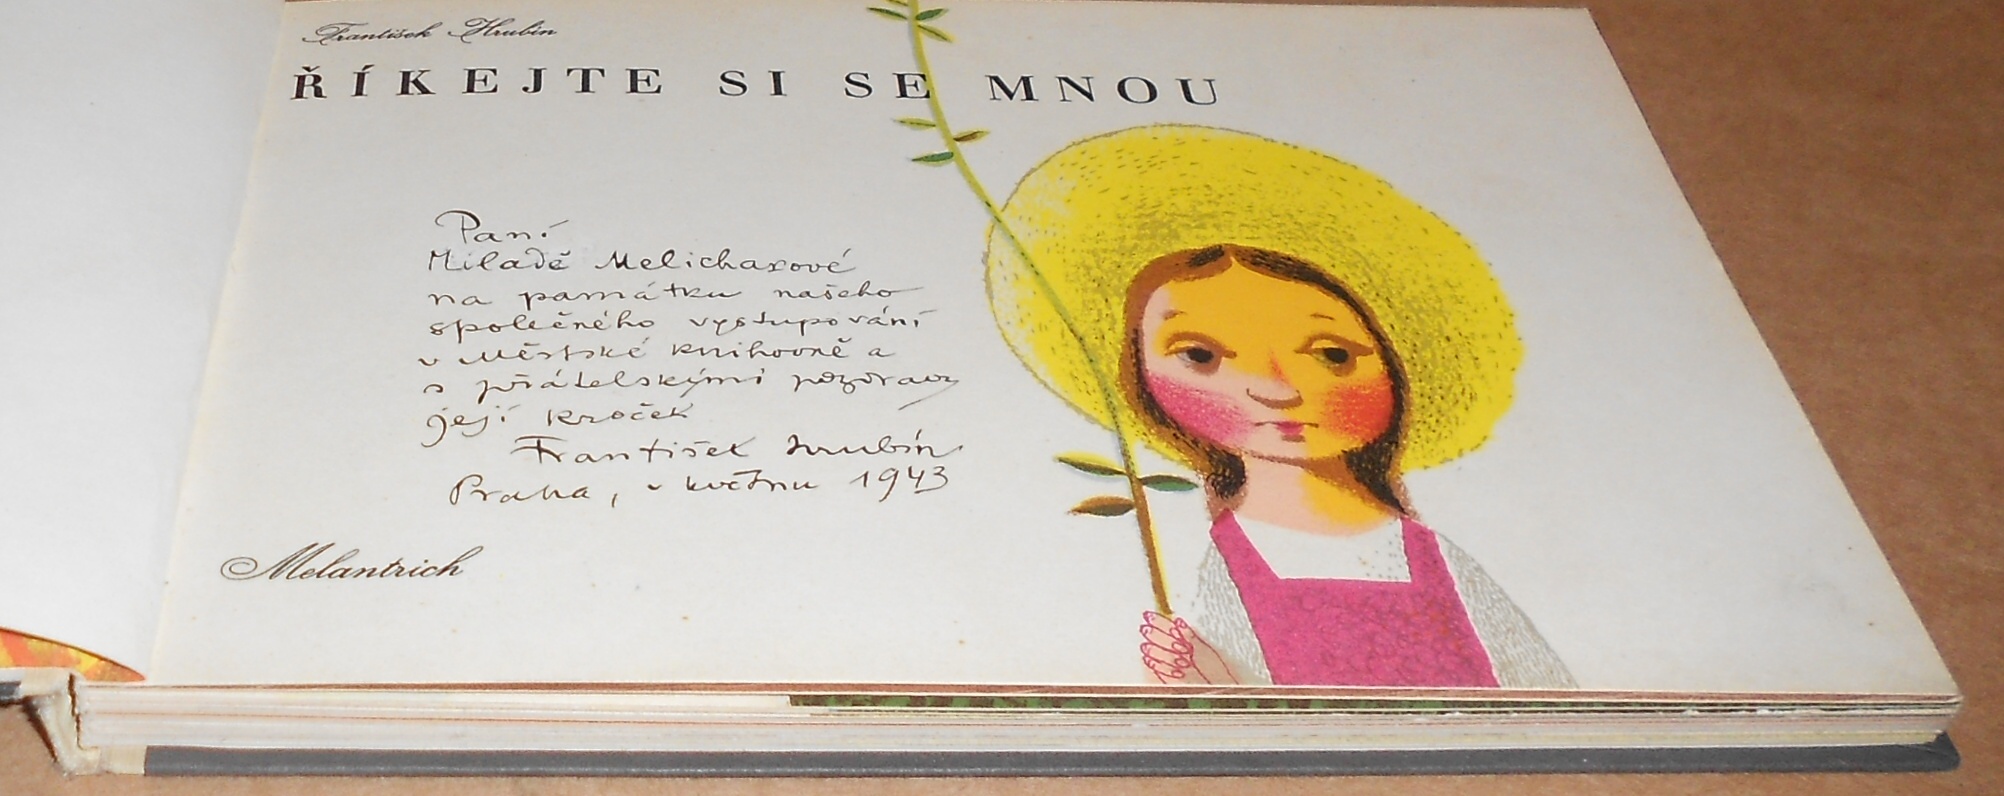 František Hrubín
ŘÍKEJTE SI SE MNOU
Paní
Miladě Melicharové
na památku našeho
společného vystupování
v Městské knihovně a
s přátelskými pozdravy
její kroček
František Hrubín
Praha, v květnu 1943
Melantrich